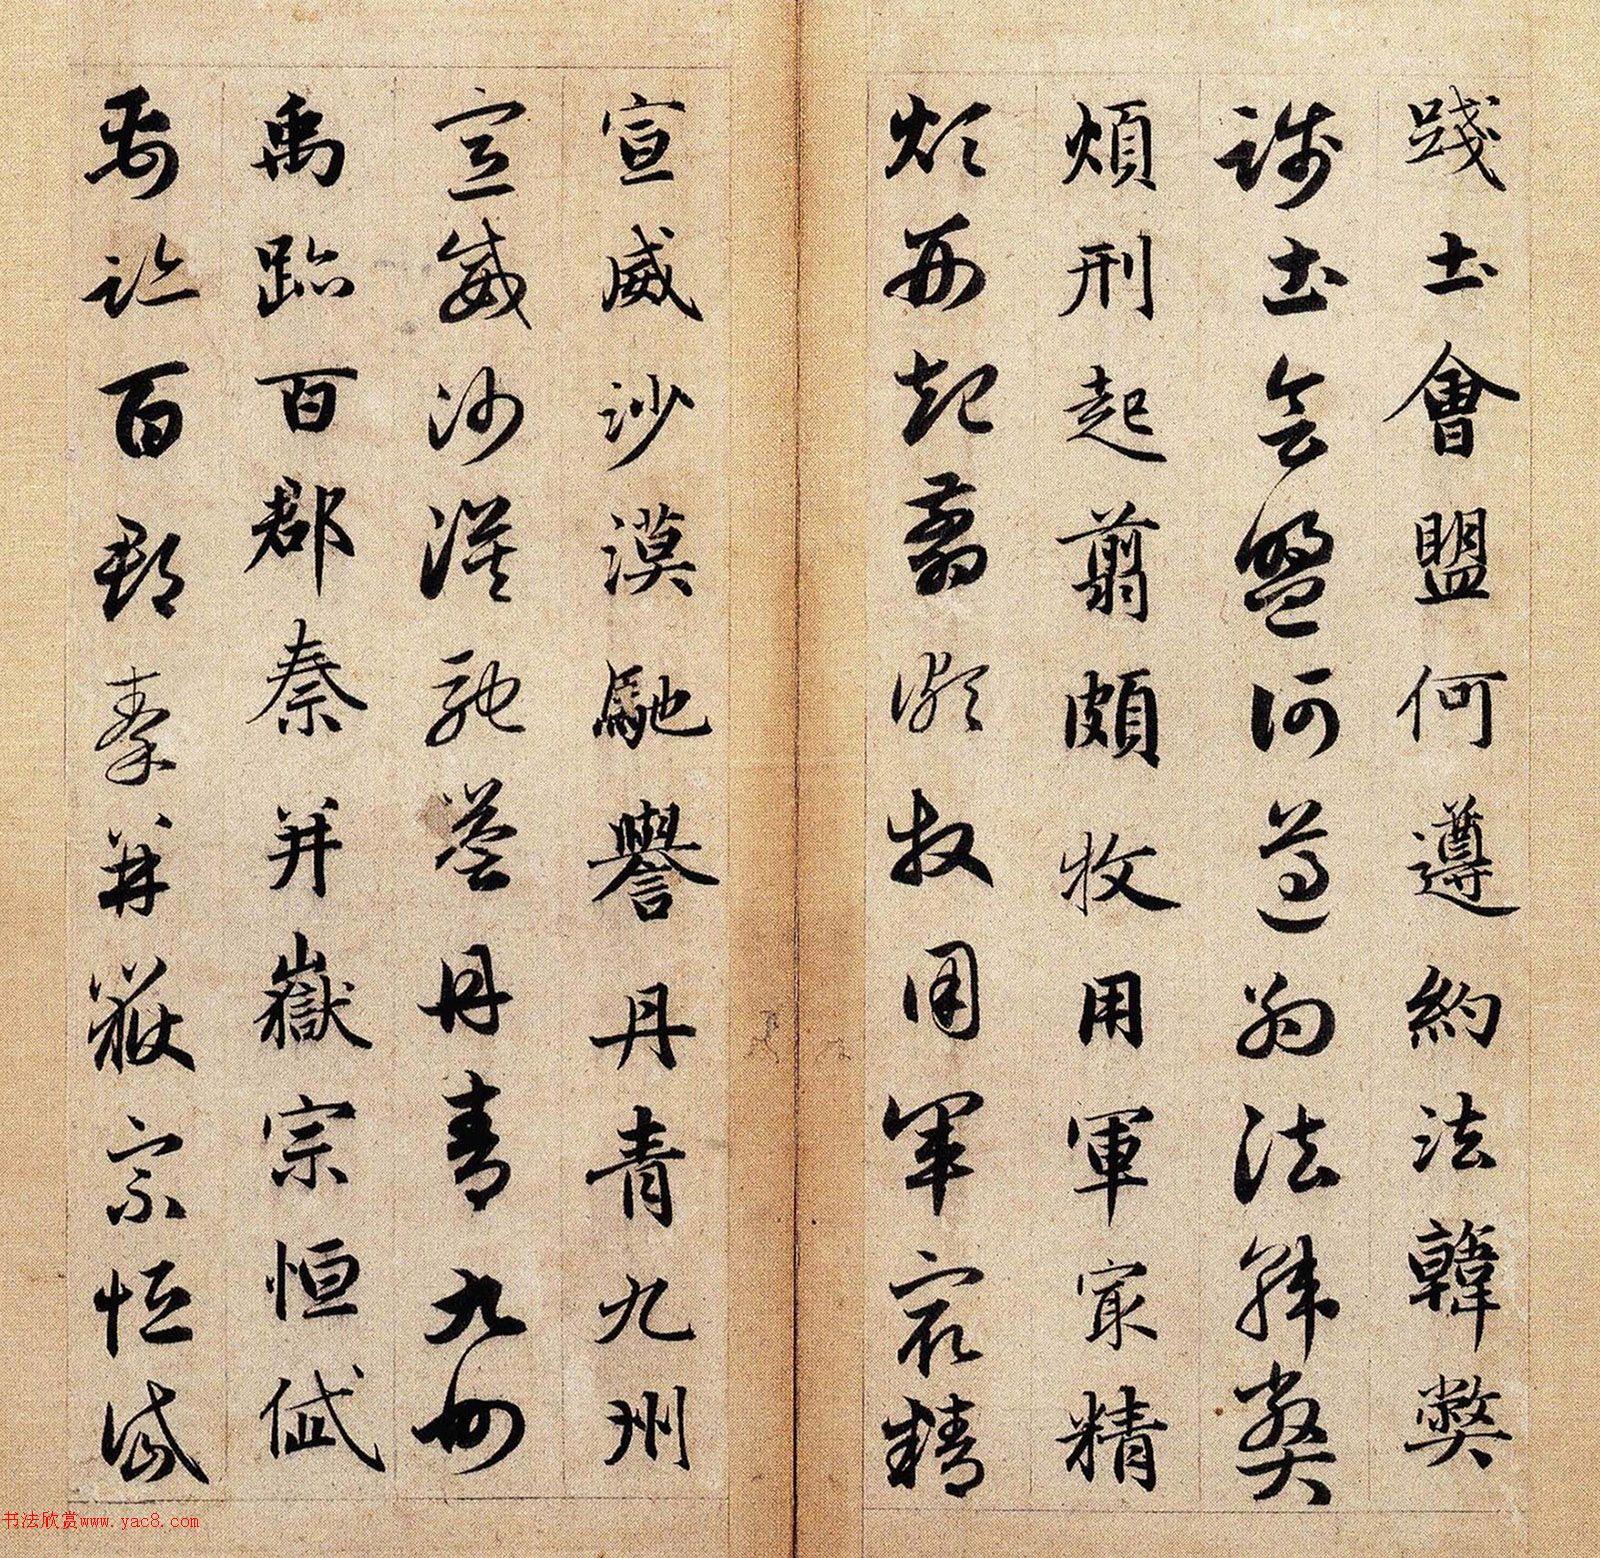 踐土會盟何遵約法韓弊
踐土會盟何遵約法韓弊
煩刑起翦頗牧用軍㝡精
煩刑起翦頗牧用軍㝡精
宣威沙漠馳譽丹青九州
宣威沙漠馳譽丹青九州
禹跡百郡秦并嶽宗恒岱
禹跡百郡秦并嶽宗恒岱
书法欣赏www.yac8.com